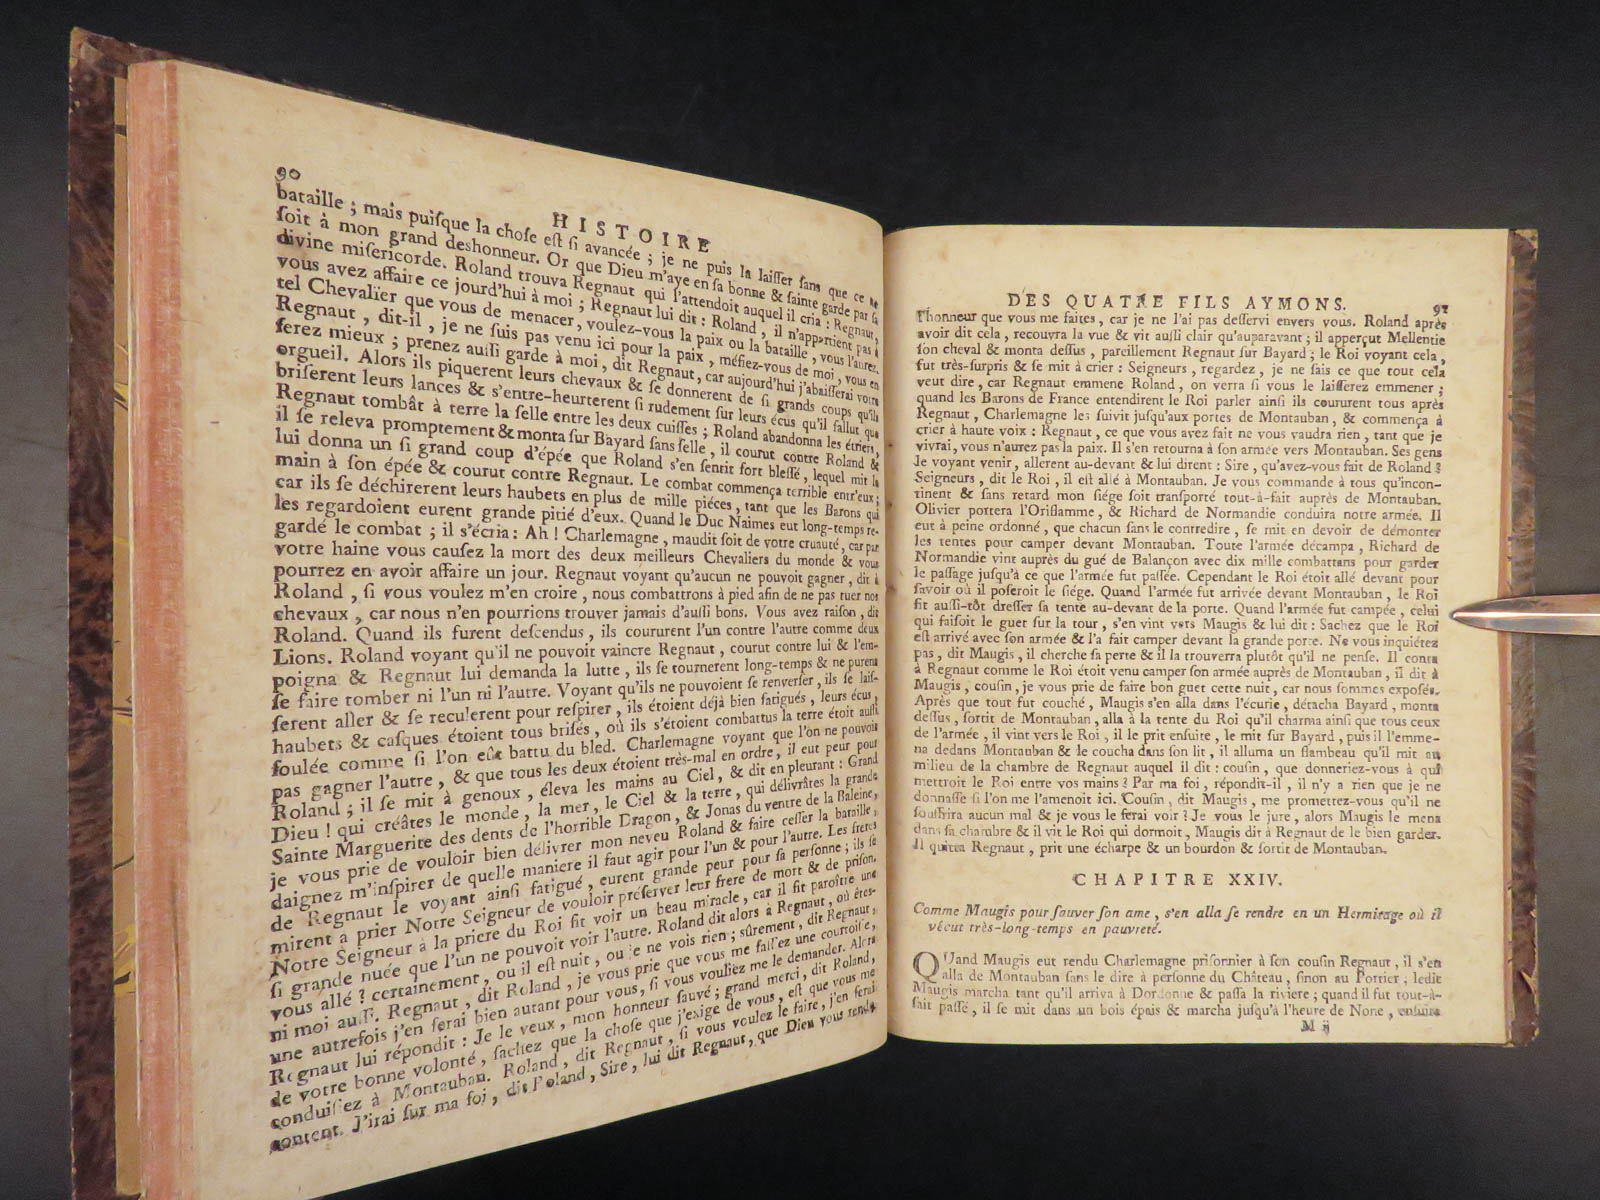 90
HISTOIRE
bataille ; mais puiſque la choſe eſt ſi avancée ; je ne puis la laiſſer ſans que ce ne
ſoit à mon grand deshonneur. Or que Dieu m'aye en ſa bonne & ſainte garde par ſa
divine miſericorde. Roland trouva Regnaut qui l'attendoit auquel il cria : Regnaut,
vous avez affaire ce jourd'hui à moi ; Regnaut lui dit : Roland, il n'appartient pas à
tel Chevalier que vous de menacer, voulez-vous la paix ou la bataille, vous l'aurez.
Regnaut, dit-il, je ne ſuis pas venu ici pour la paix, méfiez-vous de moi, vous en
ferez mieux ; prenez auſſi garde à moi, dit Regnaut, car aujourd'hui j'abaiſſerai votre
orgueil. Alors ils piquerent leurs chevaux & ſe donnerent de ſi grands coups qu'ils
briſerent leurs lances & s'entre-heurterent ſi rudement ſur leurs écus qu'il fallut que
Regnaut tombât à terre la ſelle entre les deux cuiſſes ; Roland abandonna les étriers,
il ſe releva promptement & monta ſur Bayard ſans ſelle, il courut contre Roland &
lui donna un ſi grand coup d'épée que Roland s'en ſentit fort bleſſé, lequel mit la
main à ſon épée & courut contre Regnaut. Le combat commença terrible entr'eux ;
car ils ſe déchirerent leurs haubets en plus de mille piéces, tant que les Barons qui
les regardoient eurent grande pitié d'eux. Quand le Duc Naimes eut long-temps re-
gardé le combat ; il s'écria : Ah ! Charlemagne, maudit ſoit de votre cruauté, car par
votre haine vous cauſez la mort des deux meilleurs Chevaliers du monde & vous
pourrez en avoir affaire un jour. Regnaut voyant qu'aucun ne pouvoit gagner, dit à
Roland, ſi vous voulez m'en croire, nous combattrons à pied afin de ne pas tuer nos
chevaux, car nous n'en pourrions trouver jamais d'auſſi bons. Vous avez raiſon, dit
Roland. Quand ils furent deſcendus, ils coururent l'un contre l'autre comme deux
Lions. Roland voyant qu'il ne pouvoit vaincre Regnaut, courut contre lui & l'em-
poigna & Regnaut lui demanda la lutte, ils ſe tournerent long-temps & ne purent
ſe faire tomber ni l'un ni l'autre. Voyant qu'ils ne pouvoient ſe renverſer, ils ſe laiſ-
ſerent aller & ſe reculerent pour reſpirer, ils étoient déjà bien fatigués, leurs écus,
haubets & caſques étoient tous briſés, où ils s'étoient combattus la terre étoit auſſi
foulée comme ſi l'on eût battu du bled. Charlemagne voyant que l'on ne pouvoit
pas gagner l'autre, & que tous les deux étoient très-mal en ordre, il eut peur pour
Roland ; il ſe mit à genoux, éleva les mains au Ciel, & dit en pleurant : Grand
Dieu ! qui créâtes le monde, la mer, le Ciel & la terre, qui délivrâtes la grande
Sainte Marguerite des dents de l'horrible Dragon, & Jonas du ventre de la Baleine,
je vous prie de vouloir bien délivrer mon neveu Roland & faire ceſſer la bataille,
daignez m'inſpirer de quelle maniere il faut agir pour l'un & pour l'autre. Les freres
de Regnaut le voyant ainſi fatigué, eurent grande peur pour ſa perſonne ; ils ſe
mirent à prier Notre Seigneur de vouloir préſerver leur frere de mort & de priſon.
Notre Seigneur à la priere du Roi fit voir un beau miracle, car il fit paroître une
ſi grande nuée que l'un ne pouvoit voir l'autre. Roland dit alors à Regnaut, où êtes-
vous allé ? certainement, ou il eſt nuit, ou je ne vois rien ; sûrement, dit Regnaut,
ni moi auſſi. Regnaut, dit Roland, je vous prie que vous me faſſiez une courtoiſie,
une autrefois j'en ferai bien autant pour vous, ſi vous vouliez me le demander. Alors
Regnaut lui répondit : Je le veux, mon honneur ſauvé ; grand merci, dit Roland,
de votre bonne volonté, ſachez que la choſe que j'exige de vous, eſt que vous me
conduiſiez à Montauban. Roland, dit Regnaut, ſi vous voulez le faire, j'en ſerai
content. J'irai ſur ma foi, dit Roland, Sire, lui dit Regnaut, que Dieu vous rende
DES QUATRE FILS AYMONS. 91
l'honneur que vous me faites, car je ne l'ai pas deſſervi envers vous. Roland après
avoir dit cela, recouvra la vue & vit auſſi clair qu'auparavant ; il apperçut Mellentie
ſon cheval & monta deſſus, pareillement Regnaut ſur Bayard ; le Roi voyant cela,
fut très-ſurpris & ſe mit à crier : Seigneurs, regardez, je ne ſais ce que tout cela
veut dire, car Regnaut emmene Roland, on verra ſi vous le laiſſerez emmener ;
quand les Barons de France entendirent le Roi parler ainſi ils coururent tous après
Regnaut, Charlemagne les ſuivit juſqu'aux portes de Montauban, & commença à
crier à haute voix : Regnaut, ce que vous avez fait ne vous vaudra rien, tant que je
vivrai, vous n'aurez pas la paix. Il s'en retourna à ſon armée vers Montauban. Ses gens
Je voyant venir, allerent au-devant & lui dirent : Sire, qu'avez-vous fait de Roland ?
Seigneurs, dit le Roi, il eſt allé à Montauban. Je vous commande à tous qu'incon-
tinent & ſans retard mon ſiége ſoit tranſporté tout-à-fait auprès de Montauban.
Olivier portera l'Oriflamme, & Richard de Normandie conduira notre armée. Il
eut à peine ordonné, que chacun ſans le contredire, ſe mit en devoir de démonter
les tentes pour camper devant Montauban. Toute l'armée décampa, Richard de
Normandie vint auprès du gué de Balançon avec dix mille combattans pour garder
le paſſage juſqu'à ce que l'armée fut paſſée. Cependant le Roi étoit allé devant pour
ſavoir où il poſeroit le ſiége. Quand l'armée fut arrivée devant Montauban, le Roi
fit auſſi-tôt dreſſer ſa tente au-devant de la porte. Quand l'armée fut campée, celui
qui faiſoit le guet ſur la tour, s'en vint vers Maugis & lui dit : Sachez que le Roi
eſt arrivé avec ſon armée & l'a fait camper devant la grande porte. Ne vous inquiétez
pas, dit Maugis, il cherche ſa perte & il la trouverra plutôt qu'il ne penſe. Il conta
à Regnaut comme le Roi étoit venu camper ſon armée auprès de Montauban, il dit à
Maugis, couſin, je vous prie de faire bon guet cette nuit, car nous ſommes expoſés.
Après que tout fut couché, Maugis s'en alla dans l'écurie, détacha Bayard, monta
deſſus, ſortit de Montauban, alla à la tente du Roi qu'il charma ainſi que tous ceux
de l'armée, il vint vers le Roi, il le prit enſuite, le mit ſur Bayard, puis il l'emme-
na dedans Montauban & le coucha dans ſon lit, il alluma un flambeau qu'il mit au
milieu de la chambre de Regnaut auquel il dit : couſin, que donneriez-vous à qui
mettroit le Roi entre vos mains ? Par ma foi, répondit-il, il n'y a rien que je ne
donnaſſe ſi l'on me l'amenoit ici. Couſin, dit Maugis, me promettrez-vous qu'il ne
ſouffrira aucun mal & je vous le ferai voir ? Je vous le jure, alors Maugis le mena
dans ſa chambre & il vit le Roi qui dormoit, Maugis dit à Regnaut de le bien garder.
Il quitta Regnaut, prit une écharpe & un bourdon & ſortit de Montauban.
CHAPITRE XXIV.
Comme Maugis pour ſauver ſon ame, s'en alla ſe rendre en un Hermitage où il
vécut très-long-temps en pauvreté.
QUand Maugis eut rendu Charlemagne priſonnier à ſon couſin Regnaut, il s'en
alla de Montauban ſans le dire à perſonne du Château, ſinon au Portier ; ledit
Maugis marcha tant qu'il arriva à Dordonne & paſſa la riviere ; quand il fut tout-à-
fait paſſé, il ſe mit dans un bois épais & marcha juſqu'à l'heure de None, enſuite
M ij